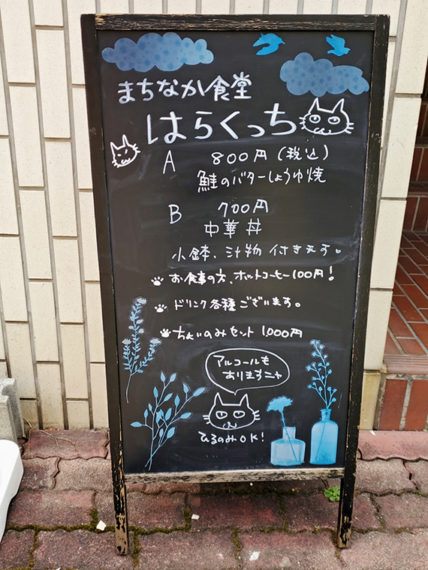 まちなか食堂
はらくっち
A 800円(税込)
鮭のバターしょうゆ焼
B 700円
中華丼
小鉢、汁物 付きます。
お食事の方、ホットコーヒー100円!
ドリンク各種ございます。
ちょいのみセット 1,000円
アルコールも
ありますニャ
ひるのみOK!